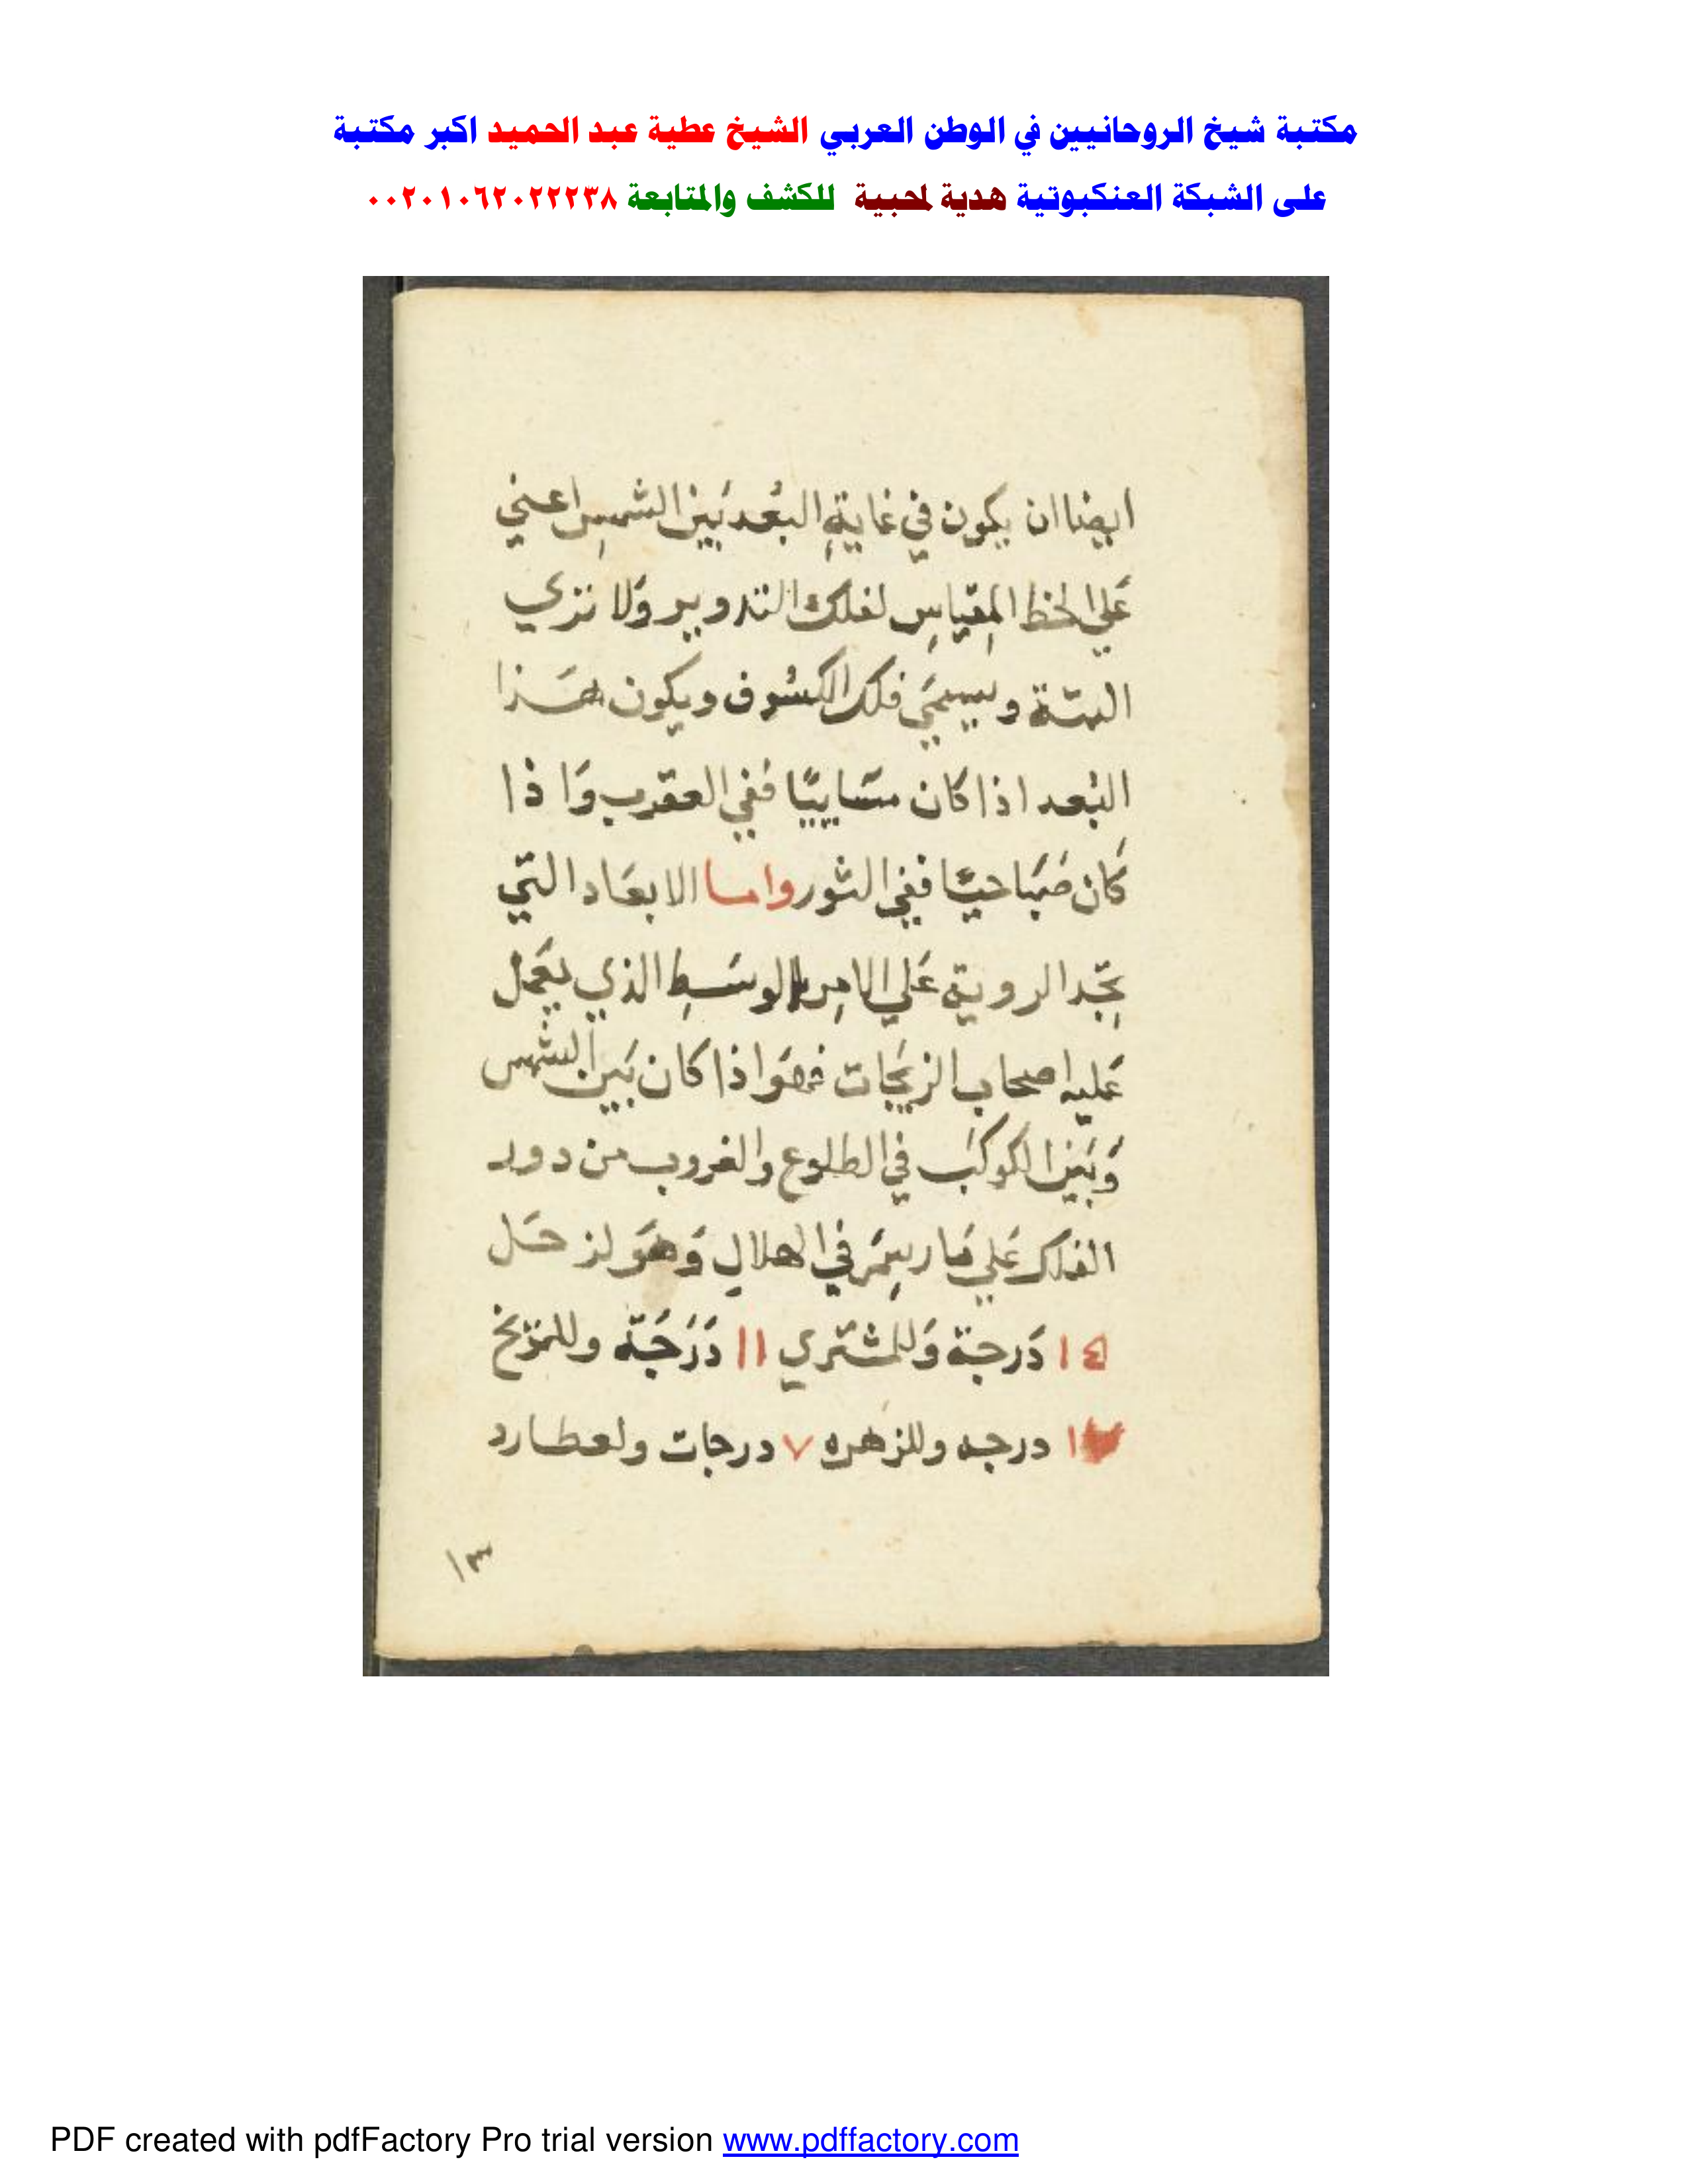 مكتبة شيخ الروحانيين في الوطن العربي الشيخ عطية عبد الحميد اكبر مكتبة
على الشبكة العنكبوتية هدية لمحبية للكشف والمتابعة ٠٠٢٠١٠٦٢٠٢٢٢٣٨
ايضا ان يكون في غايةِ البُعد بَين الشمسِ اعني
عَلي الخط المِقياسِ لفلك التدوير وَلا تري
البتة ويسمَي فلك الكسُوف ويكون هَذا
البُعد اذا كان مسَاييًا ففي العقرب وَاذا
كَان صَبَاحيًا ففي الثور واما الابعَاد التي
تجِّد الروية عَلي الامرِ الوسَطِ الذي يعَمل
عَليه اصحاب الزيَجات فهوَ اذا كان بَين الشمس
وَبَين الكوكبَ في الطلوع والغروب من دور
الفلك عَلي مَا رسِمَ في الهلالِ وَهوَ لزحَل
١٤ دَرجة وَللمشتَري ١١ دَرَجَة وللمرّيخ
درجه وللزهره ٧ درجات ولعطارد
١٣
PDF created with pdfFactory Pro trial version www.pdffactory.com